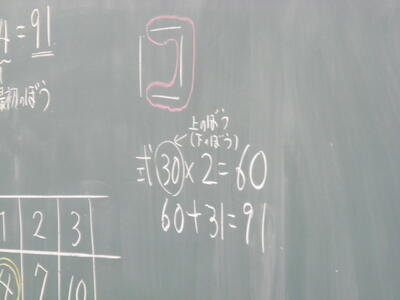 4=91
最初のぼう
上のぼう
(下のぼう)
式 30×2=60
60+31=91
1 2 3
4 7 10